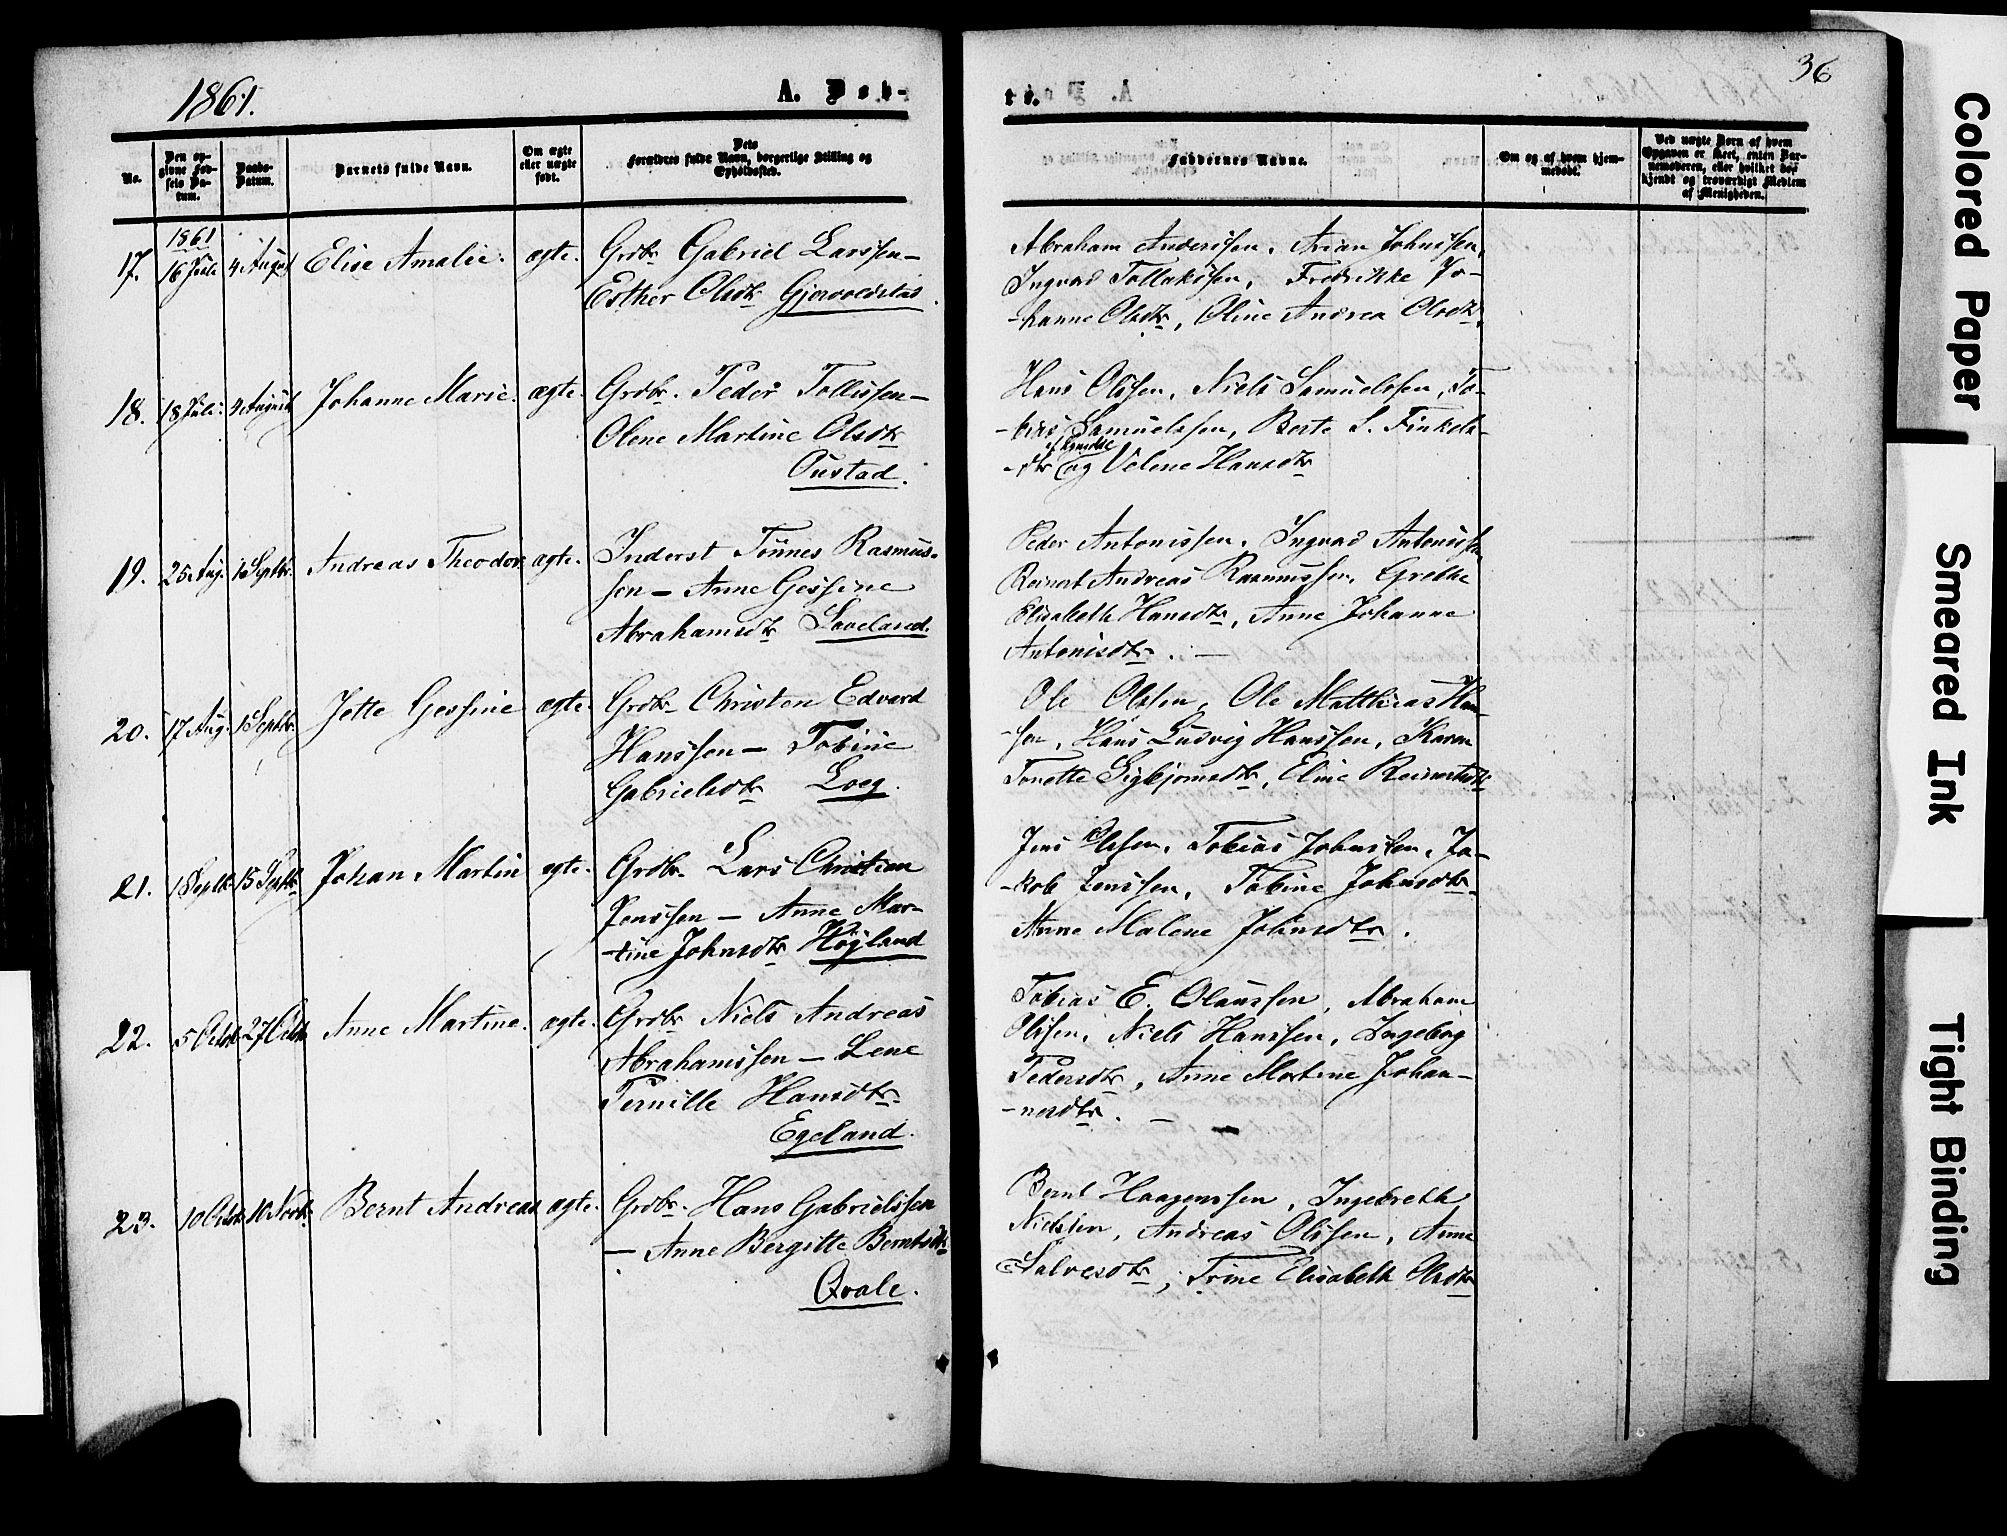 1861.
A. Døb-
te.
36
No.
Den op-
givne Fød-
sels Da-
tum.
Daabs-
Datum.
Barnets fulde Navn.
Om ægte
eller uægte
født.
Dets
Forældres fulde Navn, borgerlige Stilling og
Opholdssted.
Faddernes Navne.
Om og af hvem hjem-
medøbt.
Ved uægte Børn af hvem
Opgaven er skeet, enten Bar-
nemoderen, eller hvilket bekjendt og troværdigt Medlem
af Menigheden.
1861
17. 16 Juli 4 August Elise Amalie. ægte. Grdbr Gabriel Larssen –
Esther Olsdtr Gjervoldstad.
Abraham Anderssen, Arian Johnssen,
Ingvad Tollakssen, Fredrikke Jo-
-hanne Olsdtr, Oline Andrea Olsdtr.
18. 18 Juli. 4 August Johanne Marie. ægte. Grdbr. Peder Tollissen –
Olene Martine Olsdtr
Oustad.
Hans Olssen, Niels Samuelssen, To-
-bias Samuelssen, Berte S. Finkels-
-dtr og Velene Hansdtr
19. 25 Aug. 1 Septbr. Andreas Theodor ægte. Inderst Tönnes Rasmus-
sen – Anne Gessine
Abrahamsdtr Laveland.
Peder Antonissen, Ingvad Antonissen
Reinert Andreas Rasmussen, Grethe
Elisabeth Hansdtr, Anne Johanne
Antonisdtr. –
20. 17 Aug. 1 Septbr. Jette Gessine ægte. Grdbr Christen Edvard
Hanssen – Tobine
Gabrielsdtr Loeg.
Ole Olssen, Ole Matthias Han-
-sen, Hans Ludvig Hanssen, Karen
Tonette Sigbjørnsdtr, Eline Reinertsdtr
21. 1 Septbr 15 Septbr. Johan Martin ægte. Grdbr Lars Christian
Jenssen – Anne Mar-
-tine Johnsdtr Högland
Jens Olssen, Tobias Johnssen, Ja-
-kob Jenssen, Tobine Johnsdtr.
Anne Malene Johnsdtr.
22. 5 Octbr 27 Octbr Anne Martine. ægte. Grdbr Niels Andreas
Abrahamssen – Lene
Pernille Hansdtr.
Egeland.
Tobias E. Olaussen, Abraham
Olssen, Niels Hanssen, Ingeborg
Pedersdtr, Anne Martine Johan-
-nesdtr. –
23. 10 Octbr 10 Novbr. Bernt Andreas ægte. Grdbr. Hans Gabrielssen
– Anne Bergitte Berntsdtr
Qvale.
Bernt Haagenssen, Ingebreth
Nielssen, Andreas Olssen, Anne
Salvesdtr, Trine Elisabeth Olsdtr
Colored Paper
Smeared Ink
Tight Binding